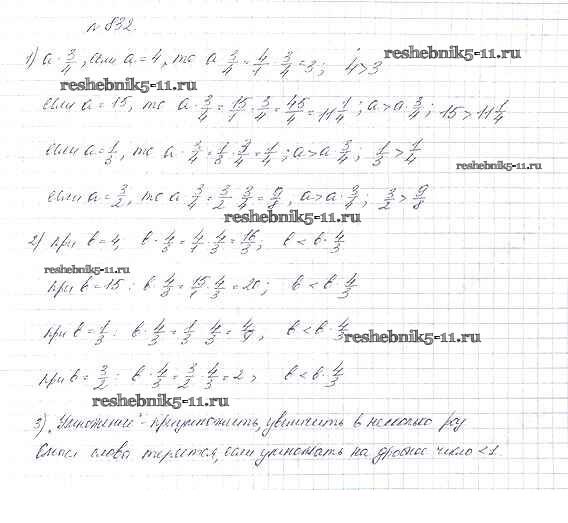 № 832.
1) a · 3/4, если a = 4, то a · 3/4 = 4/1 · 3/4 = 3; 4 > 3
reshebnik5-11.ru
reshebnik5-11.ru
если a = 15, то a · 3/4 = 15/1 · 3/4 = 45/4 = 11 1/4; a > a · 3/4; 15 > 11 1/4
если a = 1/3, то a · 3/4 = 1/3 · 3/4 = 1/4; a > a · 3/4; 1/3 > 1/4
reshebnik5-11.ru
если a = 3/2, то a · 3/4 = 3/2 · 3/4 = 9/8, a > a · 3/4; 3/2 > 9/8
reshebnik5-11.ru
2) при b = 4, b · 4/3 = 4/1 · 4/3 = 16/3; b < b · 4/3
reshebnik5-11.ru
при b = 15: b · 4/3 = 15/1 · 4/3 = 20; b < b · 4/3
при b = 1/3: b · 4/3 = 1/3 · 4/3 = 4/9, b < b · 4/3
reshebnik5-11.ru
при b = 3/2: b · 4/3 = 3/2 · 4/3 = 2, b < b · 4/3
reshebnik5-11.ru
3) „Умножение" - приумножить, увеличить в несколько раз
Смысл слова теряется, если умножать на дробное число < 1.